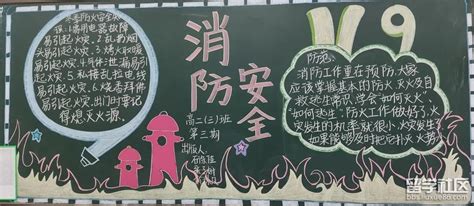 冬季防火安全
1.易引起火灾、2.乱扔烟
易引起火灾、3.烤火取暖
易引起火灾、4.
引起火灾、5.私接乱拉电线
易引起火灾、6.烧香拜佛
易引起火灾、出门时要记
得熄灭火源。
消防
安全
高二(三)班
第三期
出版人:
119
防范:
消防工作重在预防.大家
应该掌握基本的防火、灭火及自
救逃生常识,学会"如何灭火"、
"如何逃生";防火工作做好了,火
灾发生的机率就很小,火灾发生了
如果能够及时把它扑灭,火
留学社区
bbs.liuxue86.com